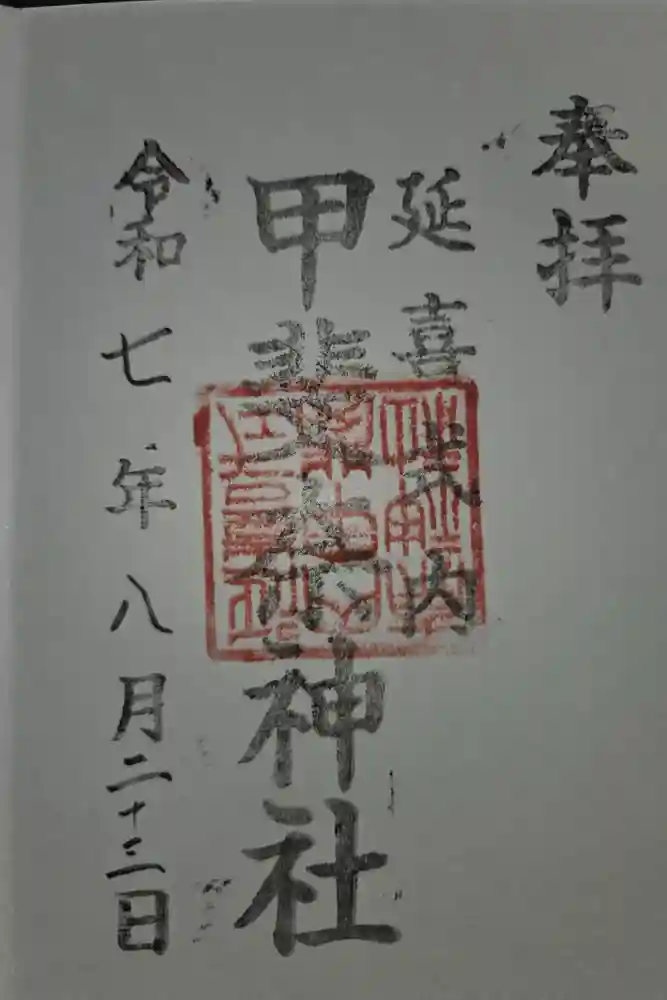 奉拝
延喜式内
甲斐奈神社
令和七年八月二十三日